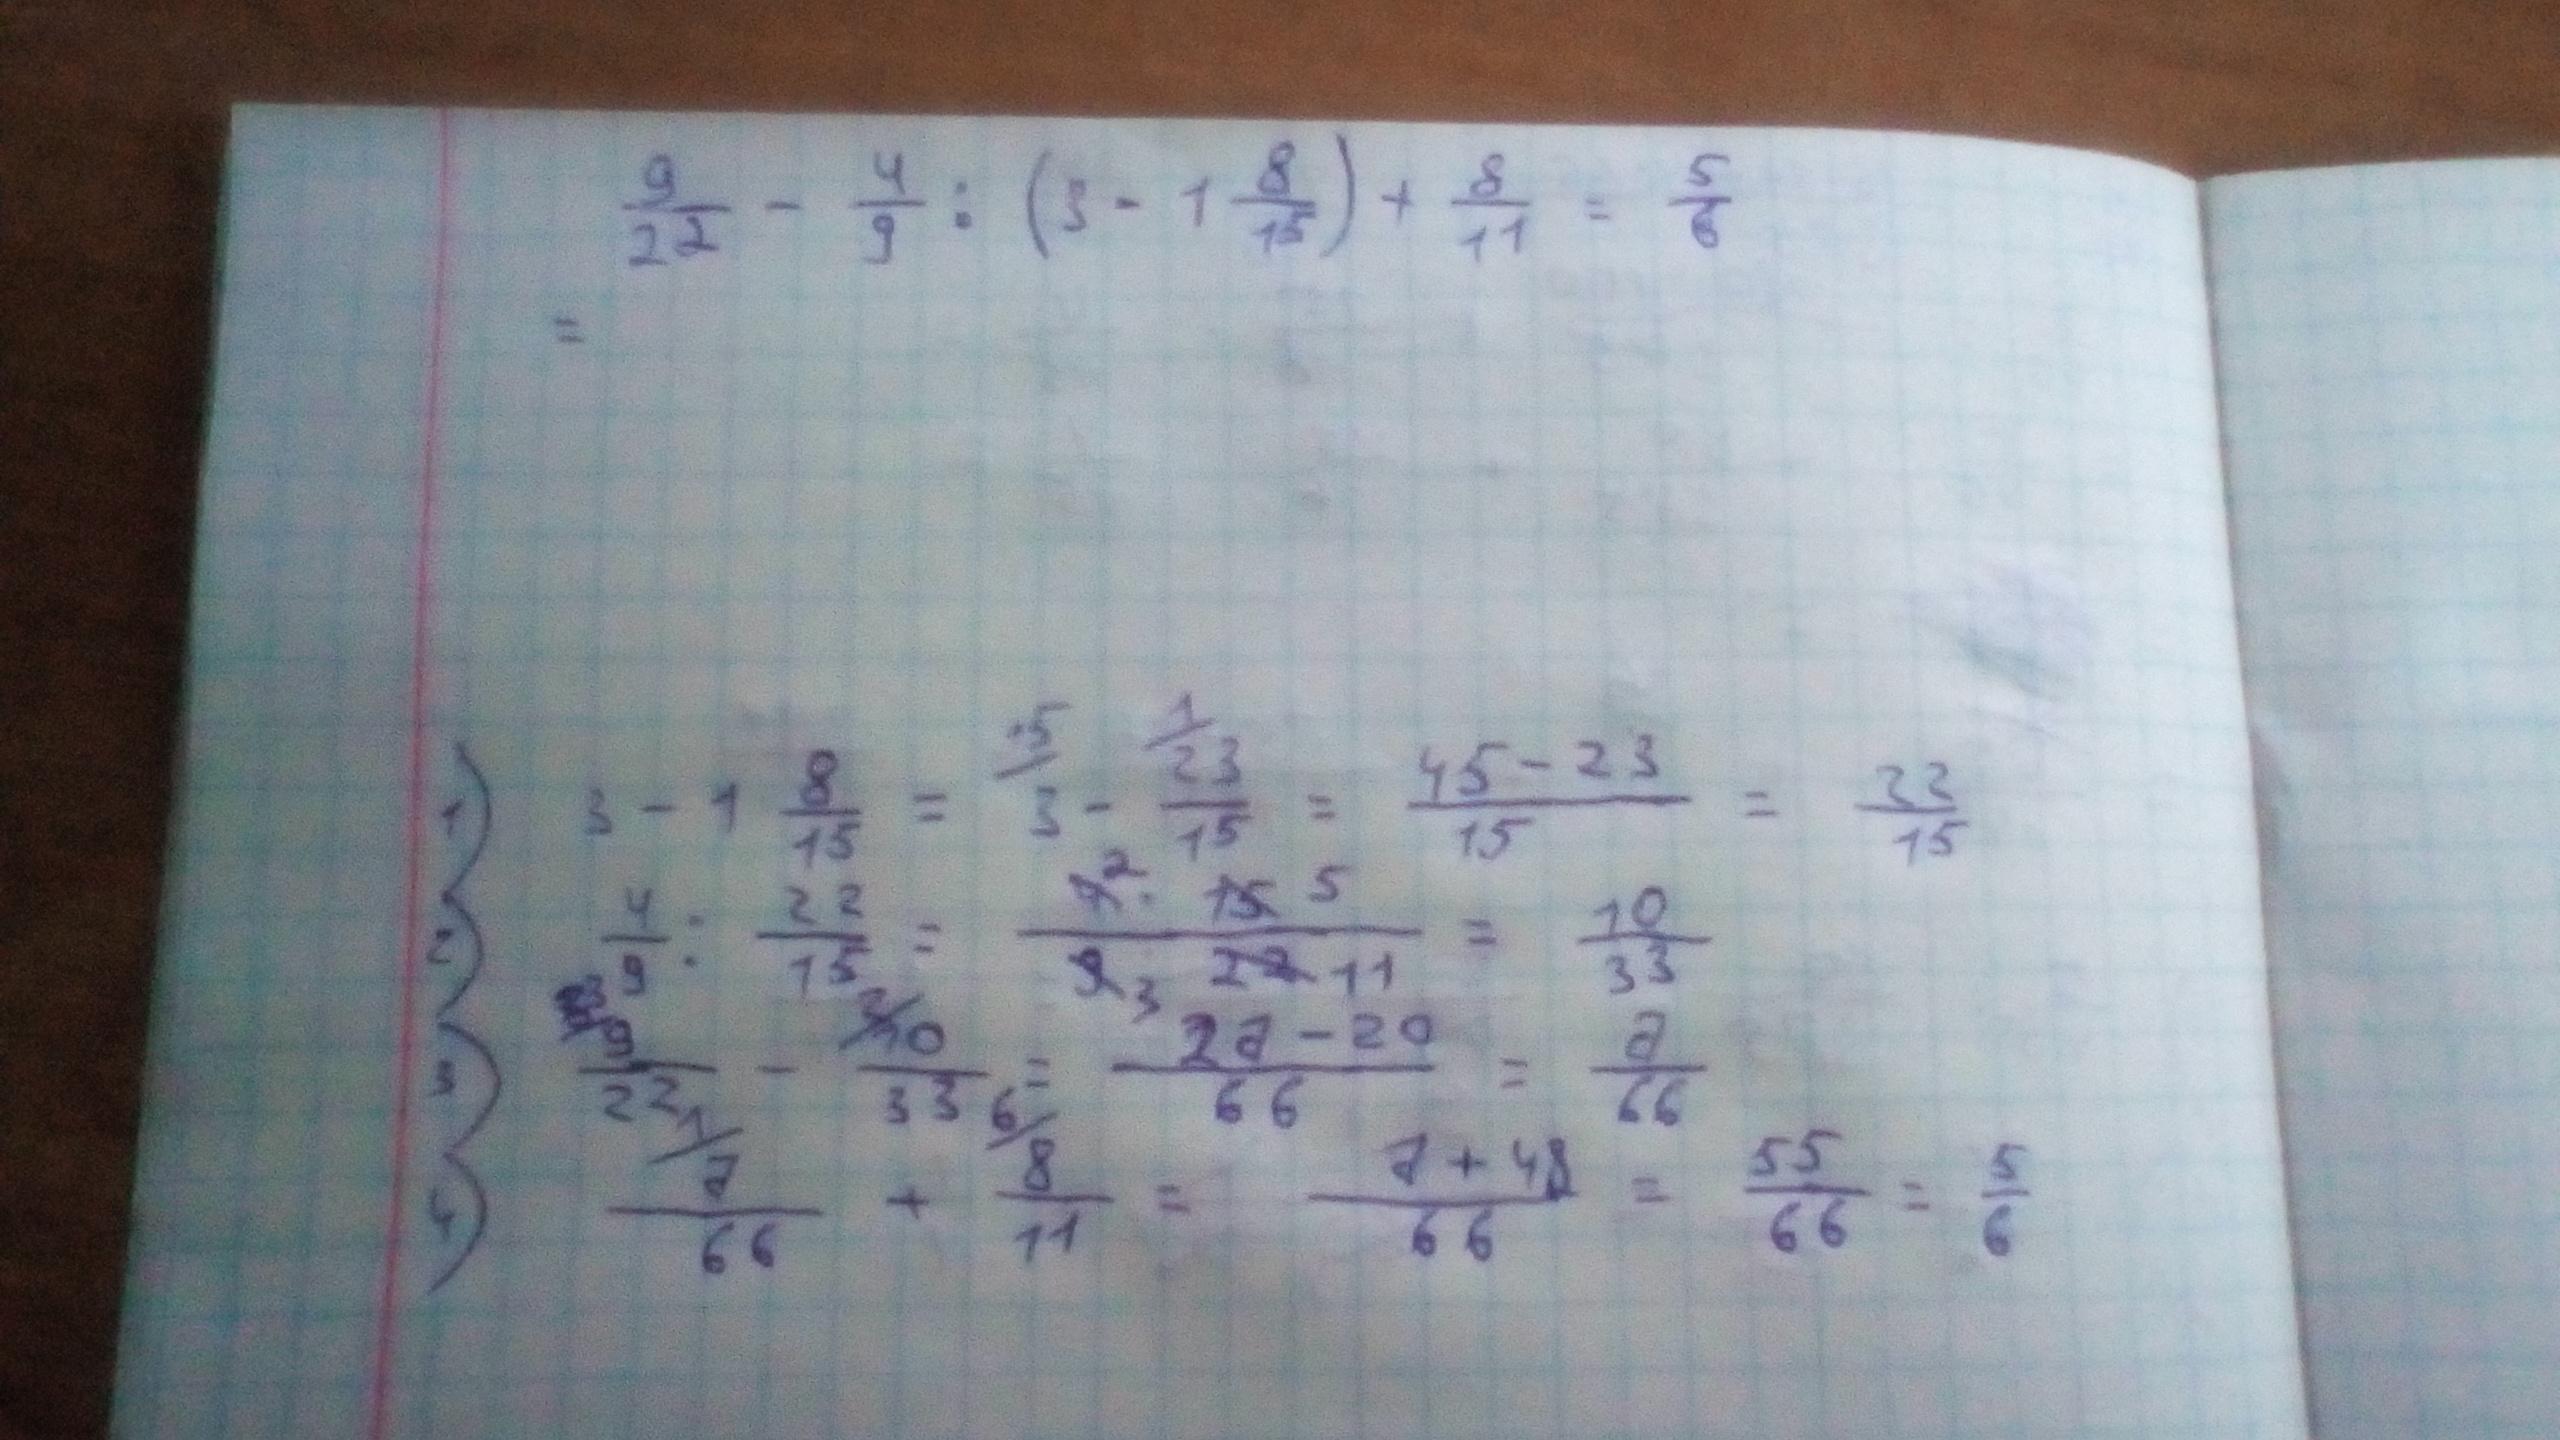 9/22 - 4/9 : (3 - 1 8/15) + 8/11 = 5/6
=
1) 3 - 1 8/15 = 3 - 23/15 = (45 - 23)/15 = 22/15
2) 4/9 : 22/15 = (4 2 · 15 5)/(9 3 22 11) = 10/33
3) 9/22 - 10/33 = (27 - 20)/66 = 7/66
4) 7/66 + 8/11 = (7 + 48)/66 = 55/66 = 5/6